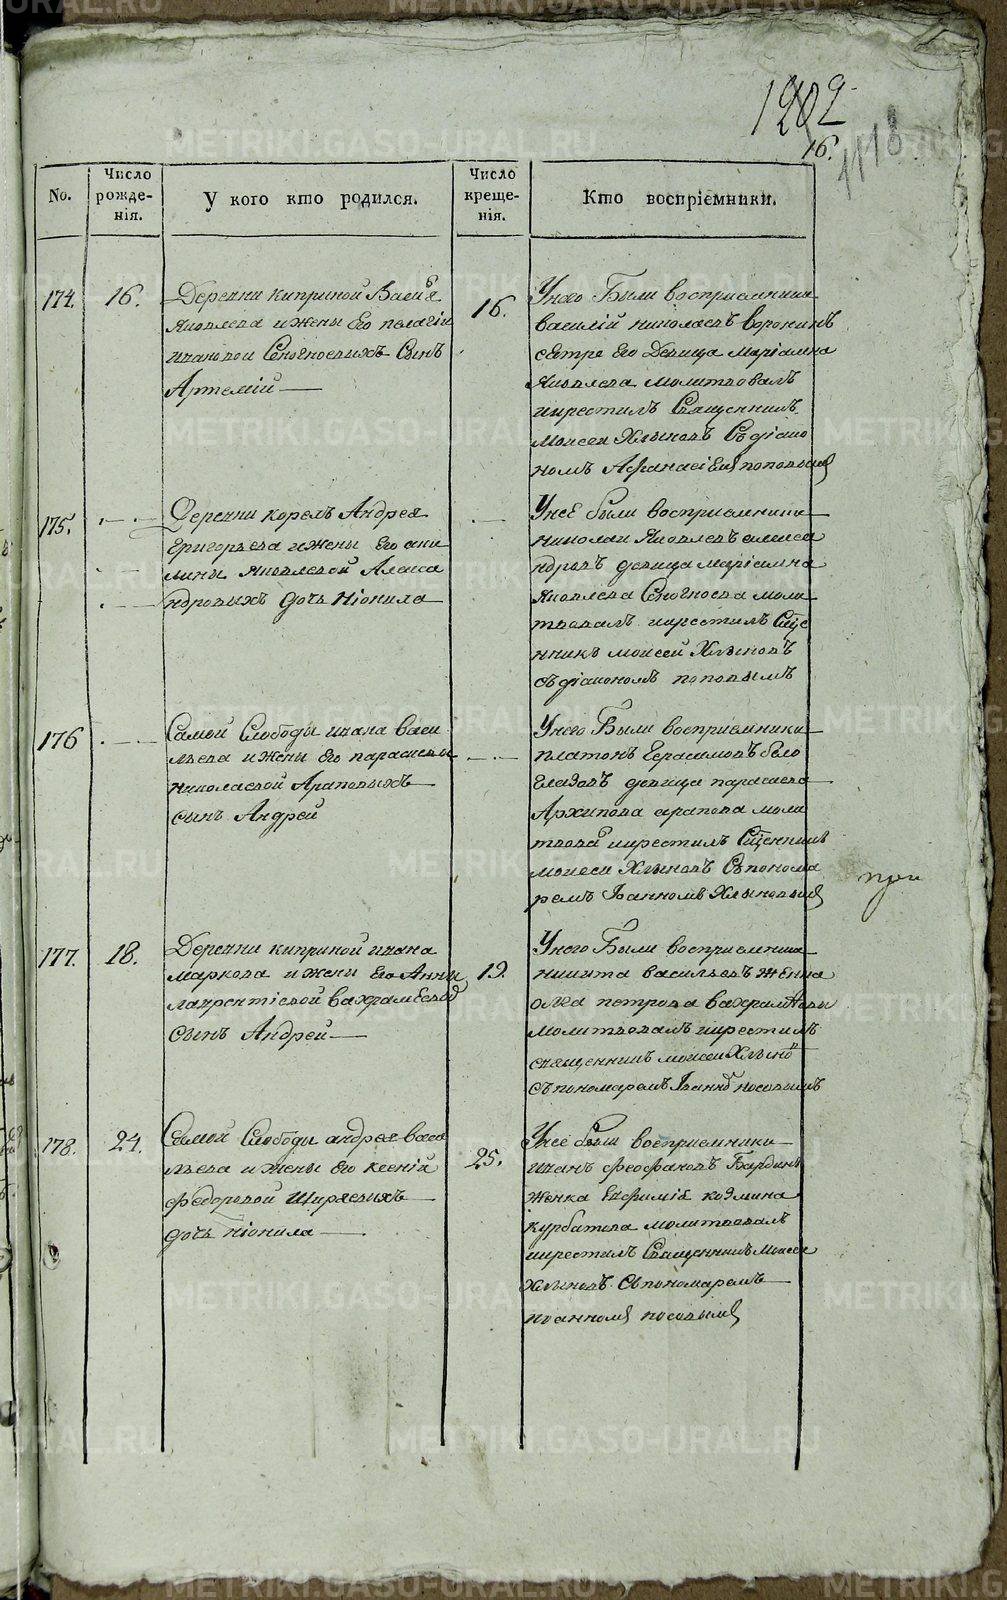 1202
16.
1118
No.
Число рожде-нія.
У кого кто родился.
Число креще-нія.
Кто воспріемники.
174.
16.
Деревни киприной Васи̇лья
Яковлева ижены Его пелагіи
ивановой Сеногноевыхъ Сынъ
Артемій
16.
Унего Были восприемники
василій николаевъ воронинъ
сестра Его девица маріамна
Яковлева молитвовалъ
икрестилъ Священникъ
моисеи Хлыновъ Съдіако
номъ Афанасіемъ поповымъ
175.
Деревни корелъ Андрея
григорьева ижены Его аки
лины яковлевой Алекса
ндровыхъ дочь Ніонила
Унеё были восприемники
николаи яковлевъ алекса
ндровъ девица маріамна
яковлева Сеногноева моли
твовалъ икрестилъ Сще
нникъ моисей Хлыновъ
съдіакономъ поповымъ
176
Самой Слободы ивана васи
льева ижены Его парасковьи
николаевой Араповыхъ
сынъ Андрей
Унего Были восприемники
платонъ Герасимовъ бело
глазовъ девица параскева
Архипова арапова моли
твовалъ икрестилъ Сщенникъ
моисеи Хлыновъ Съпонома
ремъ Іанномъ Хлыновымъ
при
177.
18.
Деревни киприной ивана
маркова ижены Его Анны
лаврентіевой вахрамеевыхъ
сынъ Андрей
19.
Унего Были восприемники
никита васильевъ женка
олга петрова вахрамѣева
молитвовалъ икрестилъ
священникъ моисеи Хлыновъ
съпономаремъ Іанномъ носовымъ
178.
24.
Самой Слободы андрея васи
льева ижены Его ксеніи
федоровой Ширяевыхъ
дочь ніонила
25.
Унеё были восприемники
иванъ феофановъ Бардинъ
женка Евфимія козмина
курбатова молитвовалъ
икрестилъ Священникъ Моисеи
Хлыновъ съпономаремъ
іоанномъ носовымъ
METRIKI.GASO-URAL.RU